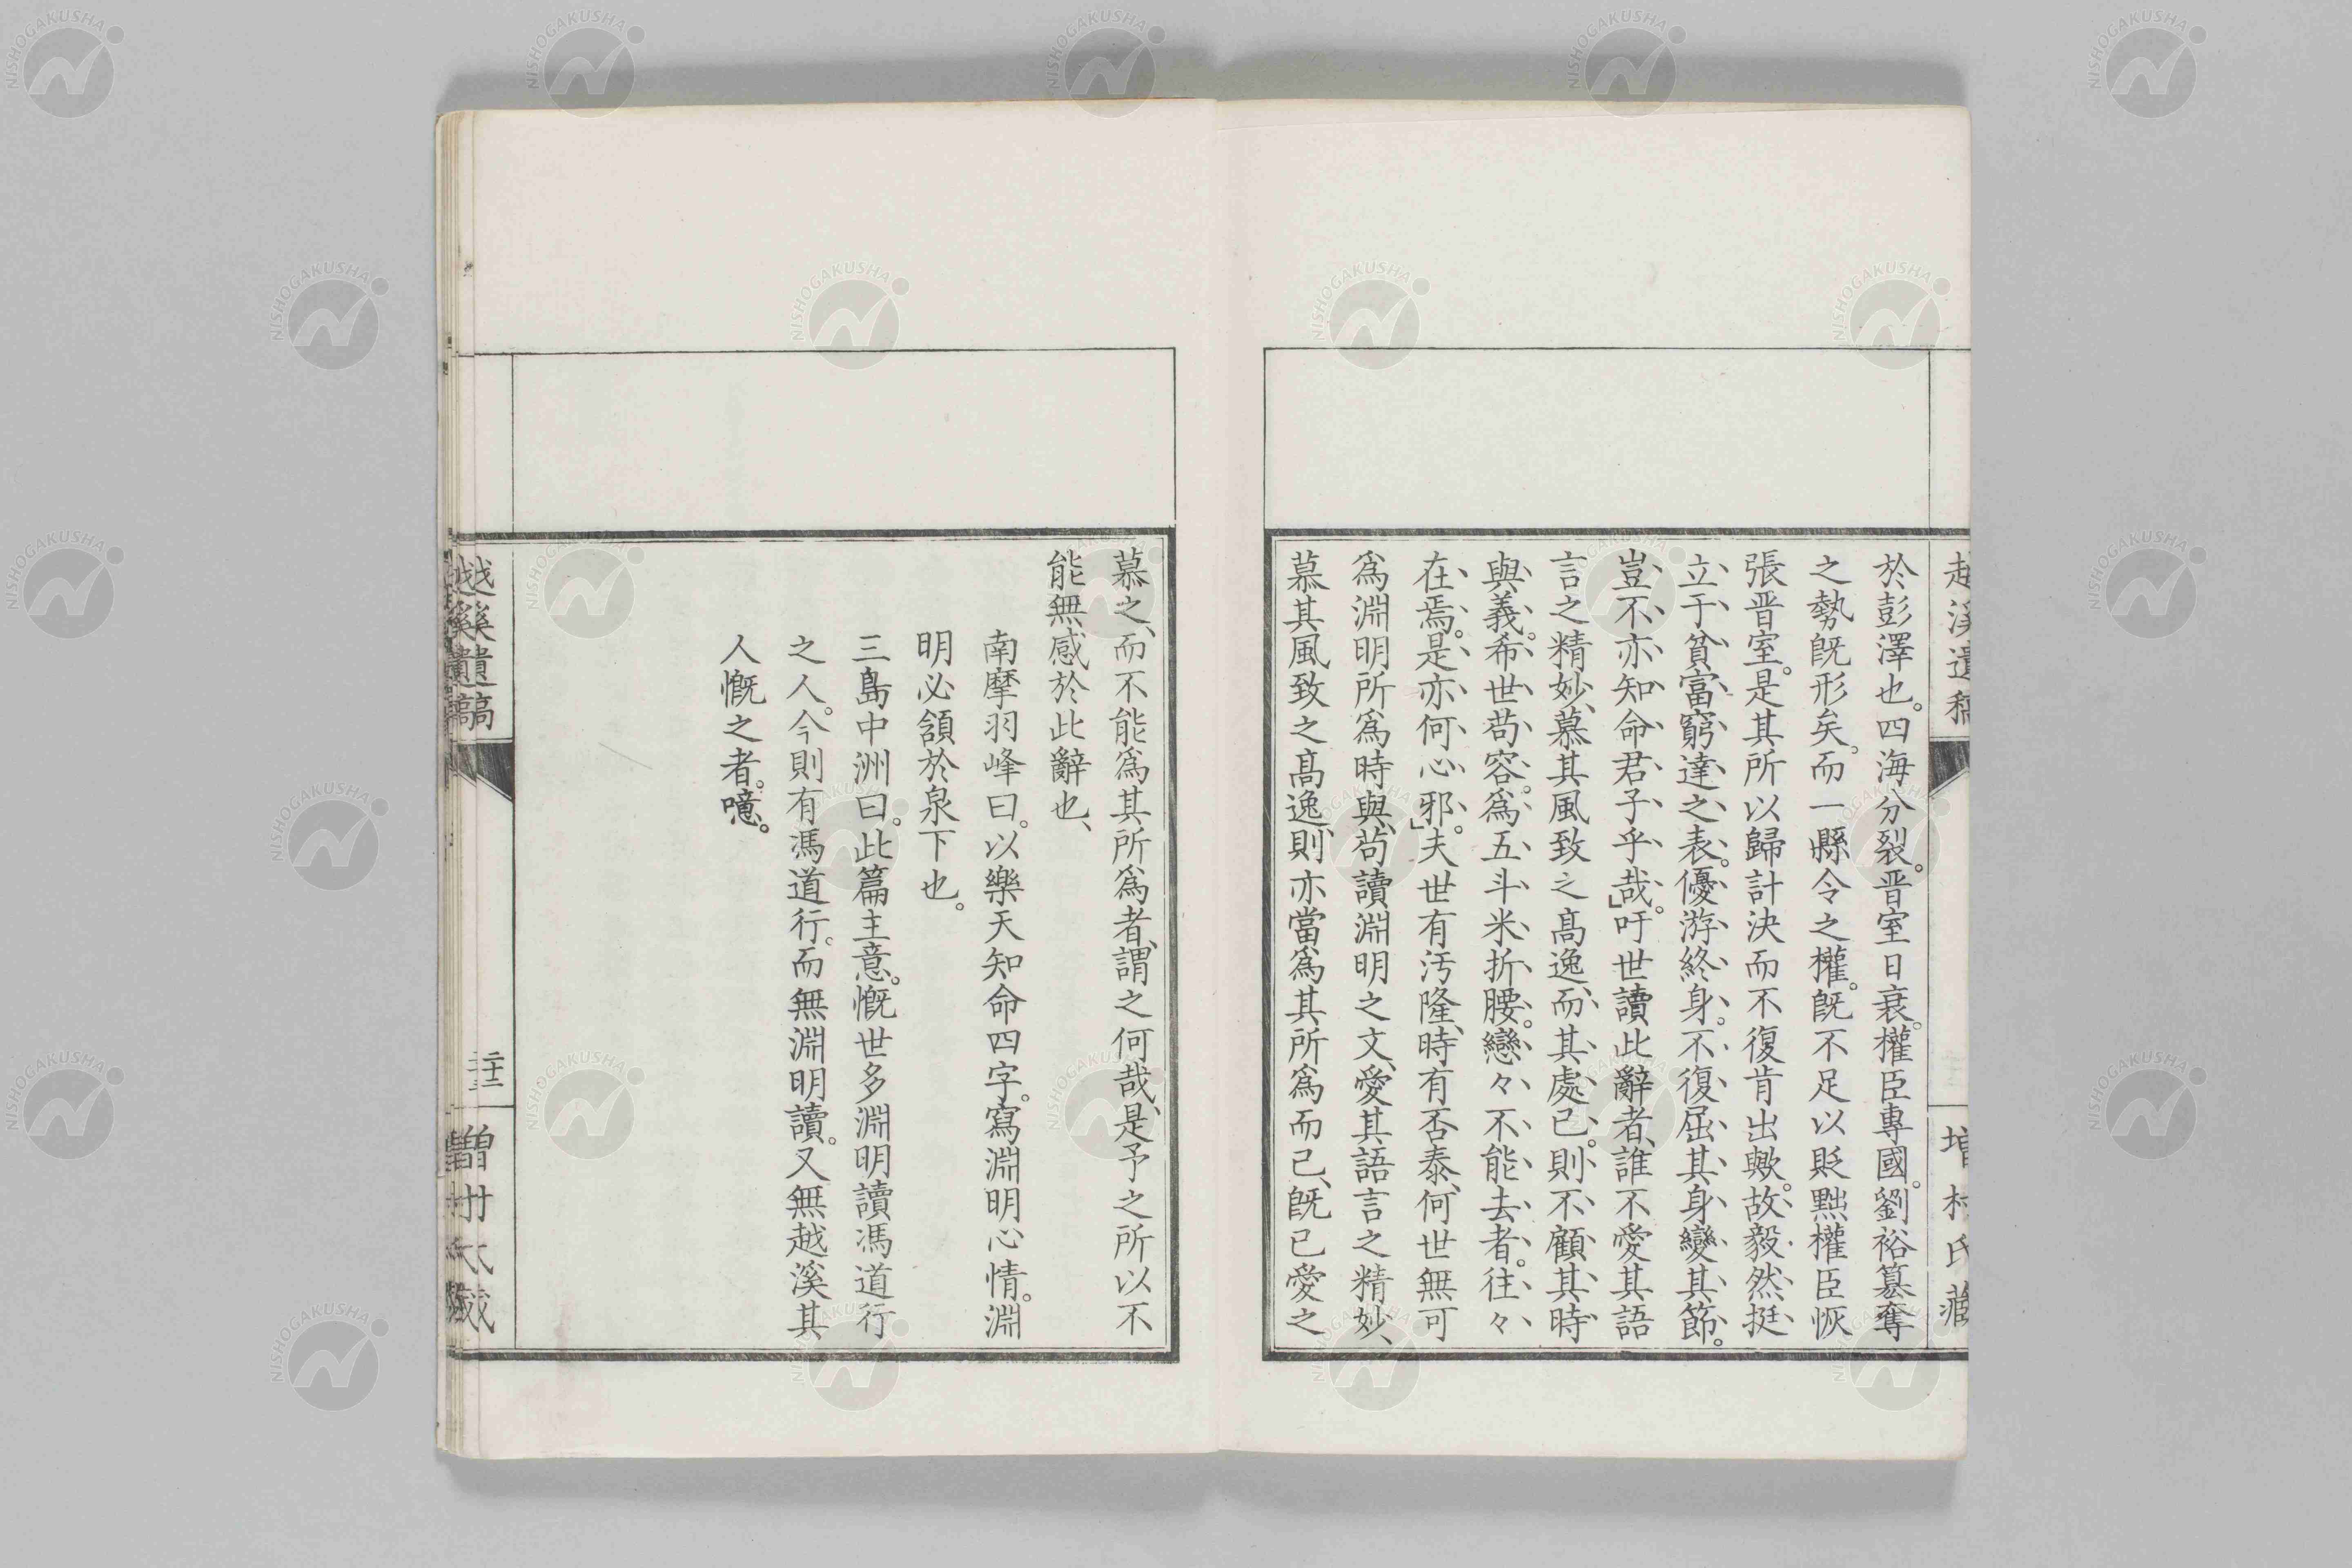 越溪遺稿
増村氏藏
於彭澤也。四海分裂。晋室日衰。權臣專國。劉裕簒奪
之勢既形矣。而一縣令之權。既不足以貶黜權臣恢
張晋室。是其所以歸計決而不復肯出歟。故毅然挺
立于貧富窮達之表。優游終身。不復屈其身變其節。
豈不亦知命君子乎哉。」吁世讀此辭者、誰不愛其語
言之精妙、慕其風致之髙逸、而其處已。則不顧其時
與義。希世苟容。爲五斗米折腰。戀々不能去者。往々
在焉。是亦何心邪。」夫世有汚隆、時有否泰、何世無可
爲淵明所爲時與、苟讀淵明之文、愛其語言之精妙、
慕其風致之髙逸、則亦當爲其所爲而已、既已愛之
慕之、而不能爲其所爲者、謂之何哉、是予之所以不
能無感於此辭也、
南摩羽峰曰。以樂天知命四字。寫淵明心情。淵
明必頷於泉下也。
三島中洲曰。此篇主意。慨世多淵明讀馮道行
之人。今則有馮道行。而無淵明讀。又無越溪其
人慨之者。噫。
越溪遺稿
二十二
NISHOGAKUSHA